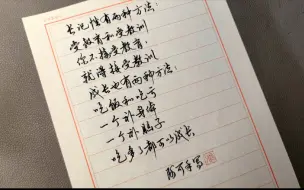 长记性有两种方法:
受教育和受教训
你不接受教育,
就得接受教训
成长也有两种方法:
吃饭和吃亏
一个补身体
一个补脑子
吃多了都可以成长